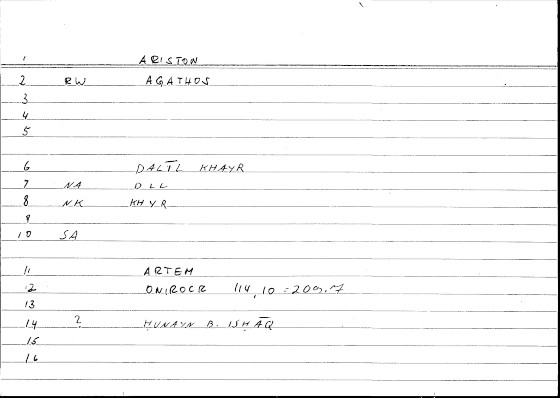 1 ARISTON
2 RW AGATHOS
3
4
5
6 DALĪL KHAYR
7 NA DLL
8 NK KHYR
9
10 SA
11 ARTEM
12 ONIROCR 114,10 = 209.17
13
14 ? ḤUNAYN B. ISḤĀQ
15
16